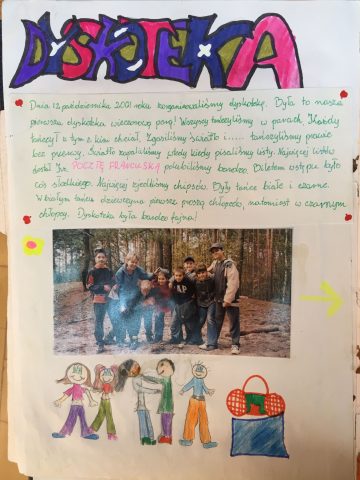 DYSKOTEKA
Dnia 12 października 2001 roku zorganizowaliśmy dyskotekę. Była to nasza
pierwsza dyskoteka wieczorową porą! Wszyscy tańczyliśmy w parach. Każdy
tańczył z tym z kim chciał. Zgasiliśmy światło i...... tańczyliśmy prawie
bez przerwy. Światło zapalaliśmy wtedy kiedy pisaliśmy listy. Najwięcej listów
dostał Irek. POCZTĘ FRANCUSKĄ polubiliśmy bardzo. Biletem wstępu było
coś słodkiego. Najwięcej zjedliśmy chipsów. Były tańce białe i czarne.
W białym tańcu dziewczyna pierwsze proszą chłopców, natomiast w czarnym
chłopcy. Dyskoteka była bardzo fajna!
GAP